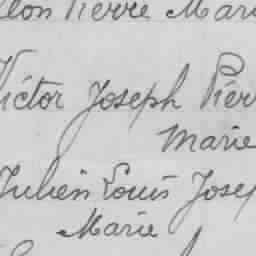 Pierre Mari
Victor Joseph Pier
Marie
Julien Louis Josep
Marie